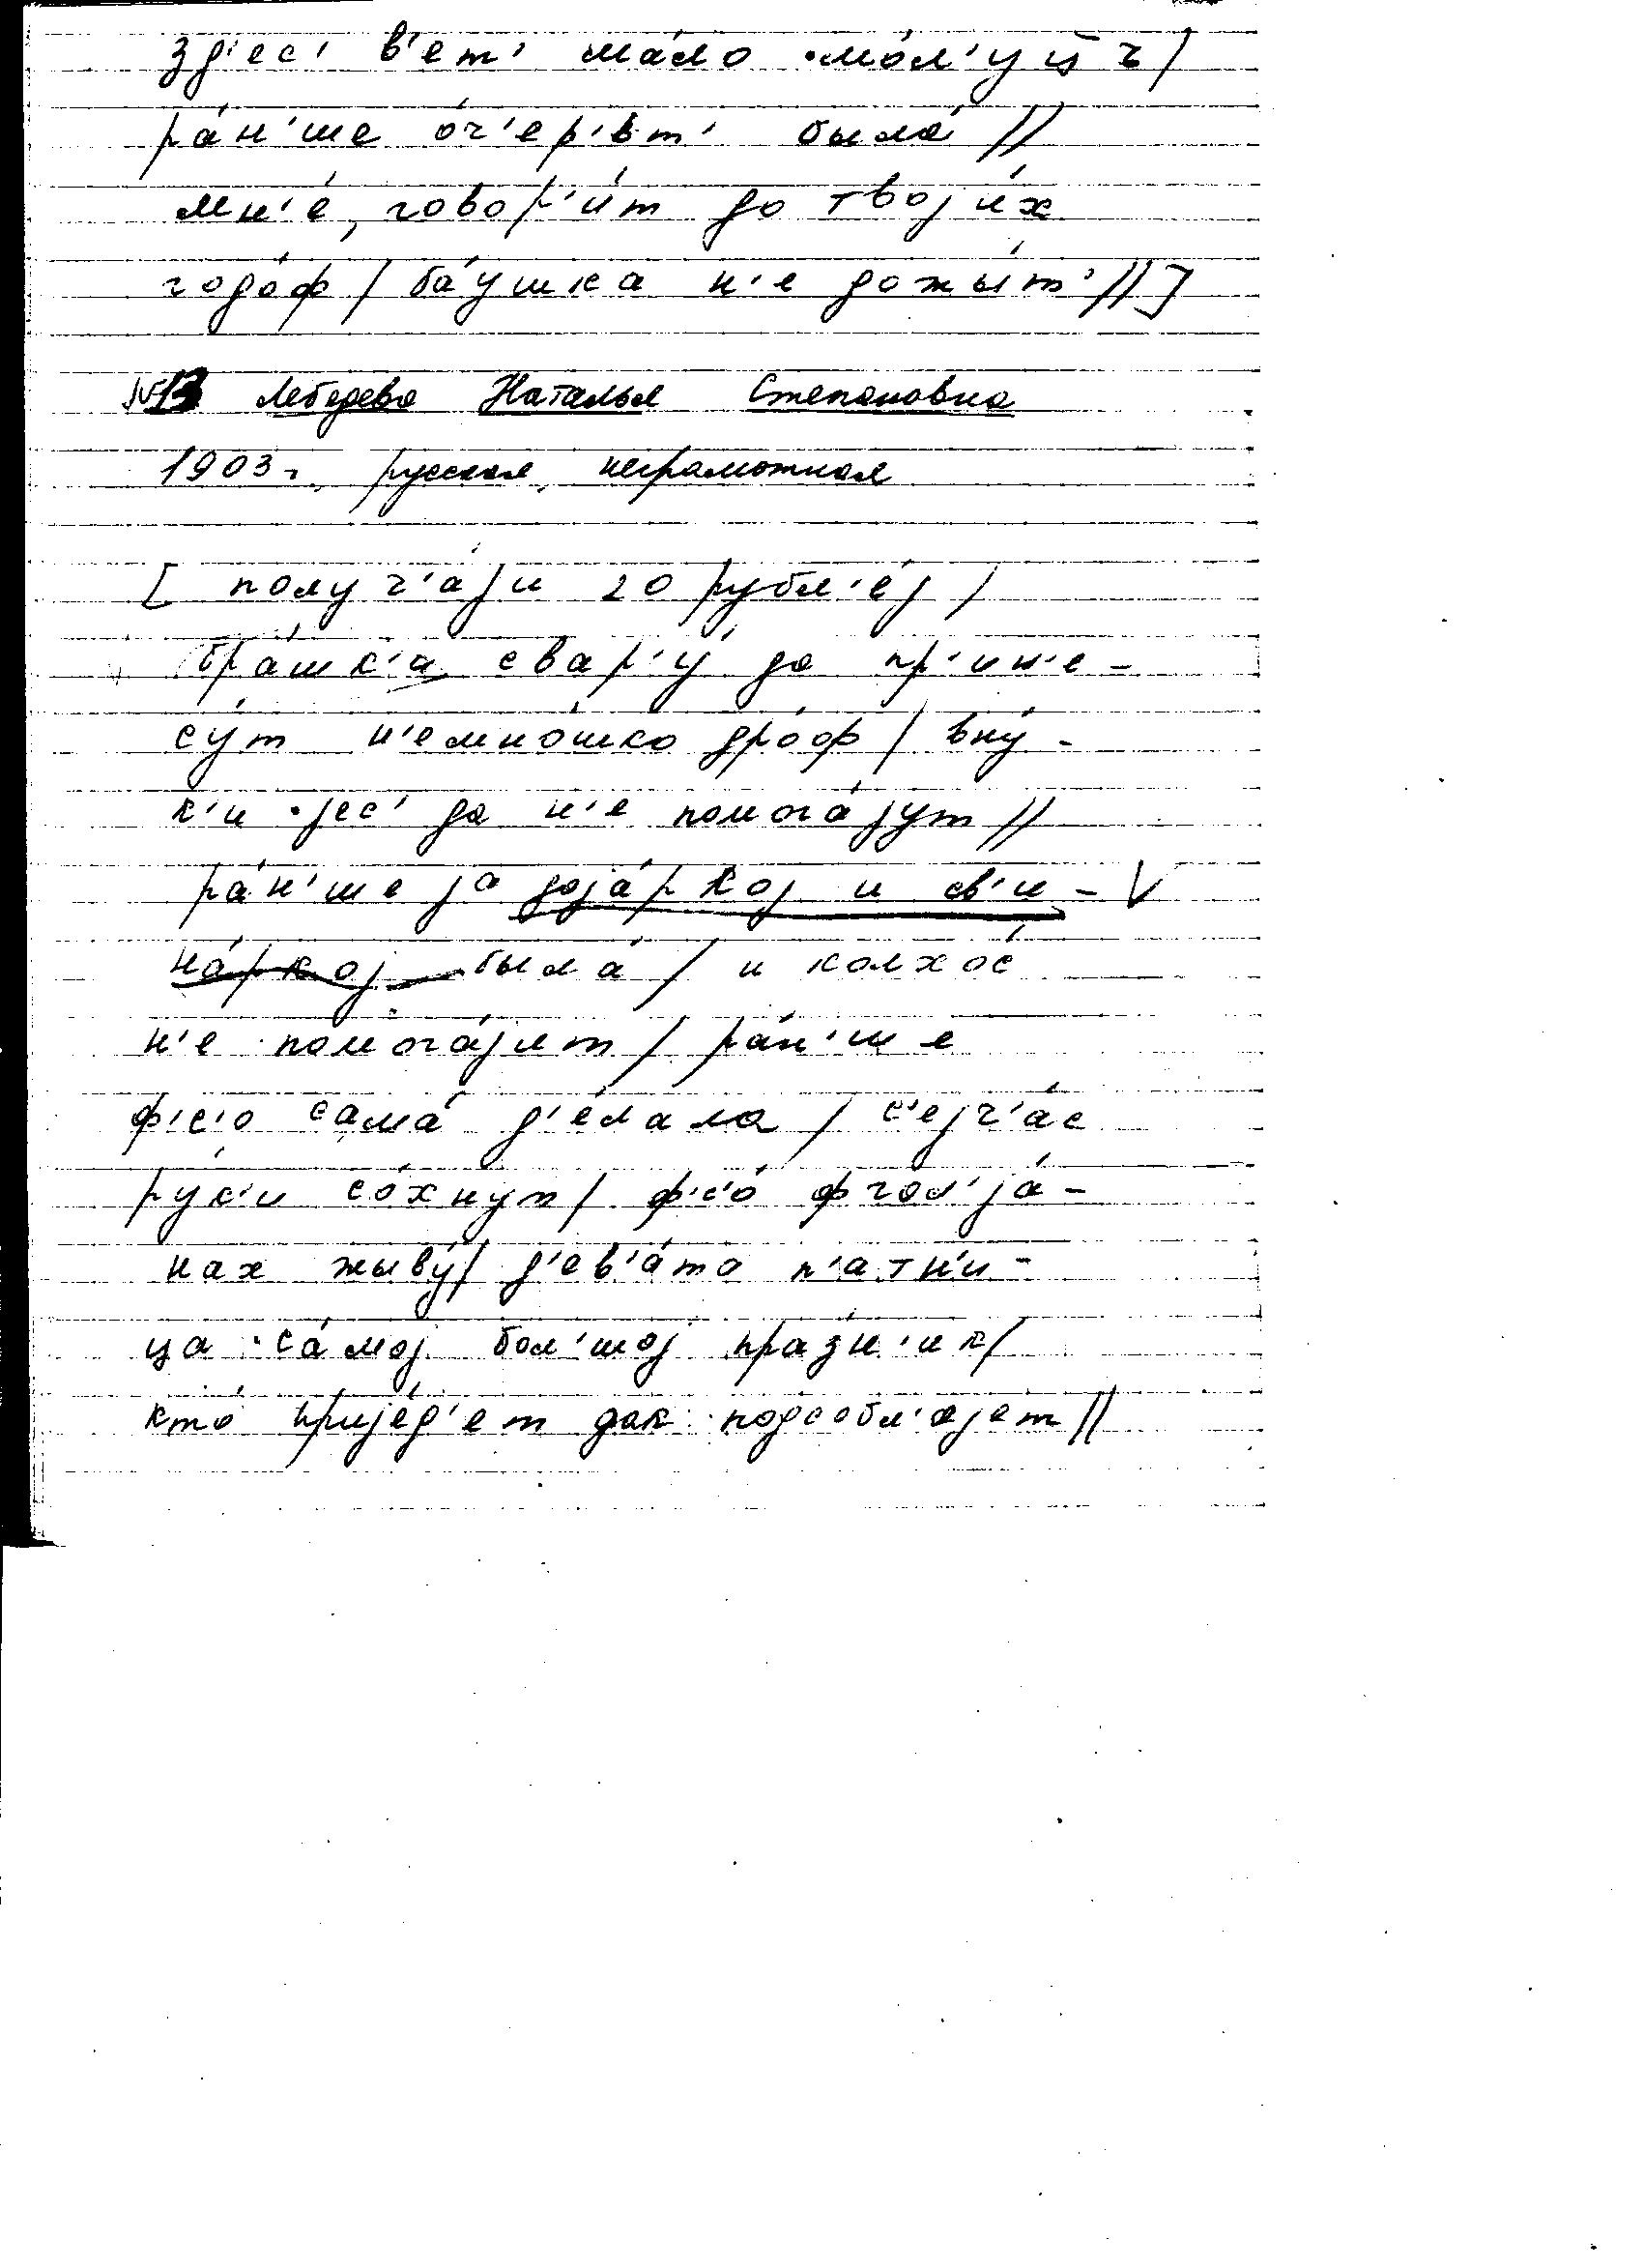 зд'ес' в'ет' ма́ло мо́л'уцъ /
ра́н'ше о́ч'ер'ьт' была́ //
мн'е́, говор'и́т до твоjи́х
годо́ф / ба́ушка н'е дожы́т' // ]
№13 Лебедева Наталья Степановна
1903 г., русская, неграмотная
[ получ'а́jи 20 рубл'е́j /
бра́шк'а свар'у́ да пр'ин'е-
су́т н'емно́шко дро́ф / вну́-
к'и jес' да н'е помога́jут //
ра́н'ше jа доjа́ркоj и св'и- V
на́ркоj была́ / и колхо́с
н'е помога́jит / ра́н'ше
ф'с'о сама́ д'е́лала / с'еjч'а́с
ру́к'и со́хнут / ф'с'о́ фгол'jа́-
нах жыву́ / д'ев'а́та п'а́тн'и-
ца са́моj бол'шоj пра́зн'ик /
кто́ приjе́д'ет дак подсобл'а́jет //